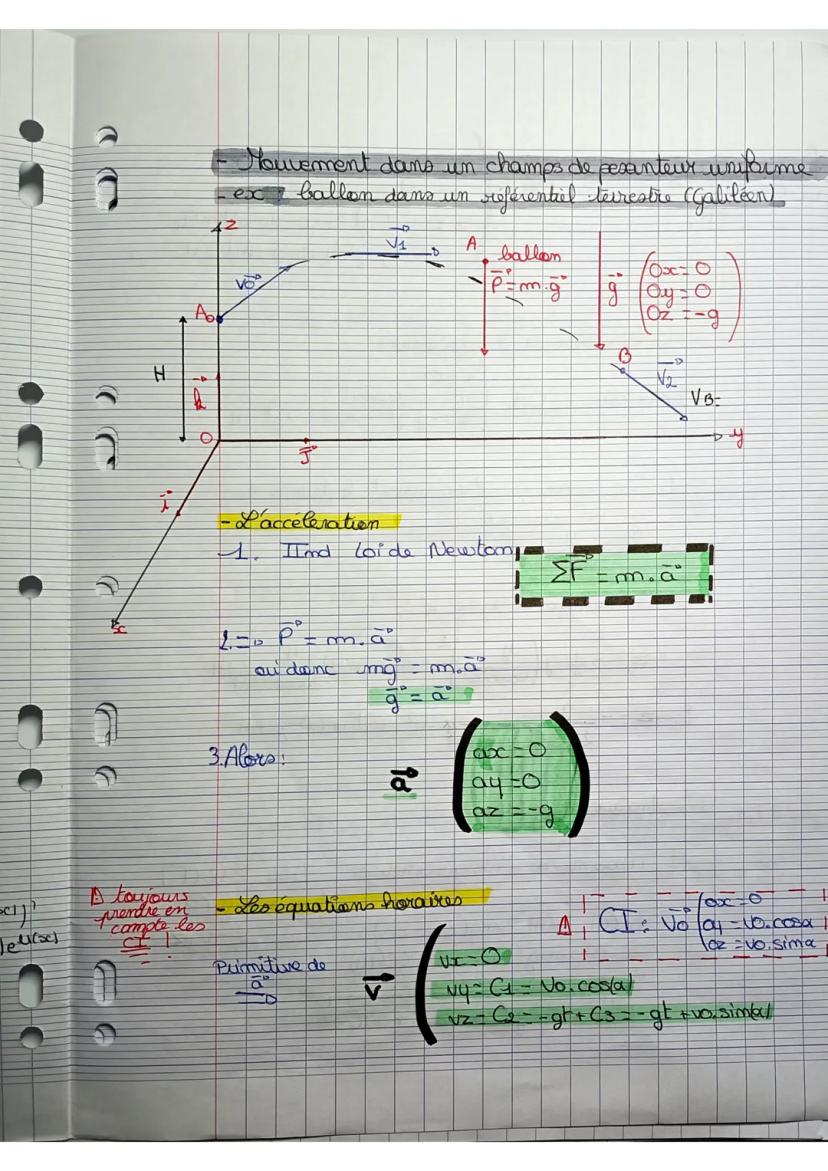 - Mouvement dans un champs de pesanteur uniforme
- ex : ballon dans un référentiel terrestre (Galiléen)
z
V1
A ballon
P = m.g
g
0x = 0
0y = 0
0z = -g
v0
A0
H
k
B
V2
VB=
O
J
y
i
x
- L'accéleration
1. IInd Loi de Newton
ΣF = m.a
2. => P = m.a
oui donc mg = m.a
g = a
3. Alors :
a
ax = 0
ay = 0
az = -g
x)'
)eu(x)
⚠ toujours
prendre en
compte les
CI !
- Les équations horaires
⚠ CI : V0
0x = 0
0y = V0.cosa
0z = V0.sina
Primitive de
a
=>
v
vx = 0
vy = C1 = V0.cos(a)
vz = C2 = -gt + C3 = -gt + v0.sin(a)